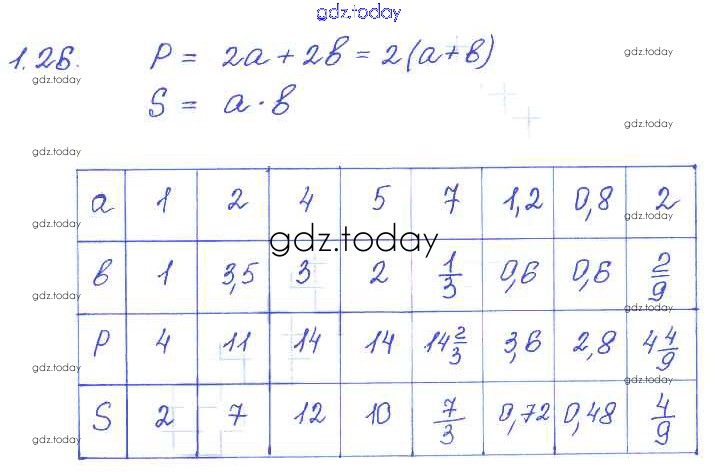 gdz.today
1.26. P = 2a + 2b = 2(a+b)
gdz.today gdz.today
S = a · b
gdz.today
gdz.today
a 1 2 4 5 7 1,2 0,8 2
gdz.today gdz.today
gdz.today
b 1 3,5 3 2 1/3 0,6 0,6 2/9
gdz.today gdz.today
P 4 11 14 14 14 2/3 3,6 2,8 4 4/9
gdz.today gdz.today
S 2 7 12 10 7/3 0,72 0,48 4/9
gdz.today gdz.today